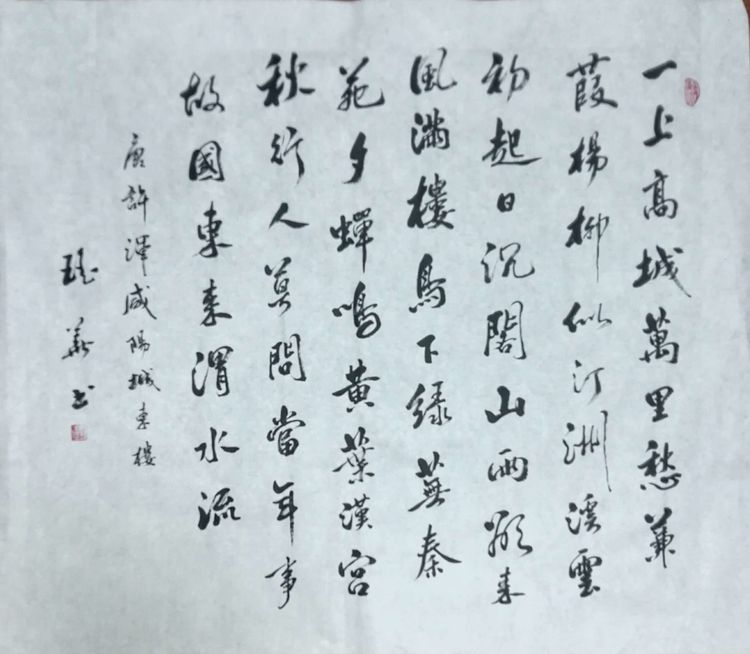 一上高城萬里愁蒹
葭楊柳似汀洲溪雲
初起日沉閣山雨欲來
風滿樓鳥下綠蕪秦
苑夕蟬鳴黃葉漢宮
秋行人莫問當年事
故國東來渭水流
唐許渾咸陽城東樓
華书